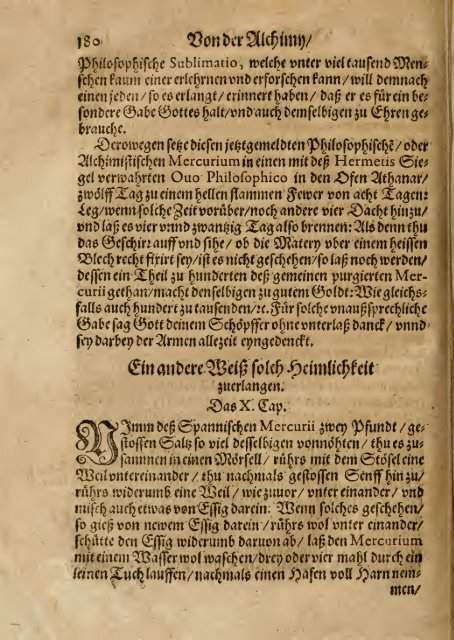 180 Von der Alchimy/
Philosophische Sublimatio, welche vnter viel tausend Men-
schen kaum einer erlehrnen vnd erforschen kann/ will demnach
einen jeden/ so es erlangt/ erinnert haben/ daß er es für ein be-
sondere Gabe Gottes halt/ vnd auch demselbigen zu Ehren ge-
brauche.
Derowegen setze diesen jetztgemeldten Philosophische/ oder
Alchimistischen Mercurium in einen mit deß Hermetis Sie-
gel verwahrten Ouo Philosophico in den Ofen Athanar/
zwölff Tag zu einem hellen flammen Fewer von acht Tagen:
Leg/ wenn solche Zeit vorüber/ noch andere vier Dacht hinzu/
vnd laß es vier vnnd zwantzig Tag also brennen: Als denn thu
das Geschirr auff vnd sihe/ ob die Matery vber einem heissen
Blech recht fixirt sey/ ist es nicht geschehen/ so laß noch werden/
dessen ein Theil zu hunderten deß gemeinen purgierten Mer-
curii gethan/ macht denselbigen zu gutem Goldt: Wie gleichs-
falls auch hundert zu tausenden/ ꝛc. Für solche vnaußsprechliche
Gabe sag Gott deinem Schöpffer ohne vnterlaß danck/ vnnd
sey darbey der Armen allezeit eyngedenckt.
Ein andere Weiß solch Heimlichkeit
zuerlangen.
Das X. Cap.
NImm deß Spannischen Mercurii zwey Pfundt/ ge-
stossen Saltz so viel desselbigen vonnöhten/ thu es zu-
sammen in einen Mörsell/ rührs mit dem Stösel eine
Weil vntereinander/ thu nachmals gestossen Senff hinzu/
rührs widerumb eine Weil/ wie zuuor/ vnter einander/ vnd
misch auch etwas von Essig darein: Wenn solches geschehen/
so gieß von newem Essig darein/ rührs wol vnter einander/
schütte den Essig widerumb daruon ab/ laß den Mercurium
mit einem Wasser wol waschen/ drey oder vier mahl durch ein
leinen Tuch lauffen/ nachmals einen Hafen voll Harn nem-
men/